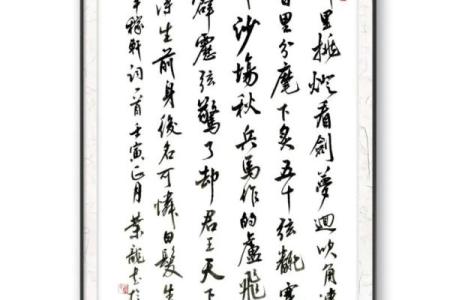 里挑燈看劍夢迴吹角連
百里分麾下炙五十弦翻塞
沙場秋兵馬作的盧飛
霹靂弦驚了却君王天下
得生前身後名可憐白髮生
辛稼軒詞一首壬寅正月龍書